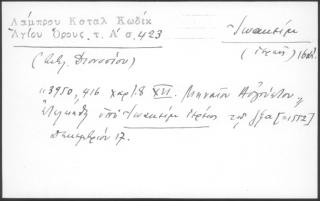 Λάμπρου Κοταλ Κωδικ
Ἁγίου Ὄρους, τ. Α' σ. 423
Ἰωακεὶμ
(ἱερεὺς) 16
(Βιβλ. Διονυσίου)
"3950, 416. χαρ. 8 XVI. Μηναῖον Αὐγούστου.
Ἐγράφη ὑπὸ Ἰωακεὶμ ἱερέως τῷ ζξα [=1552]
Δεκεμβρίου 17.